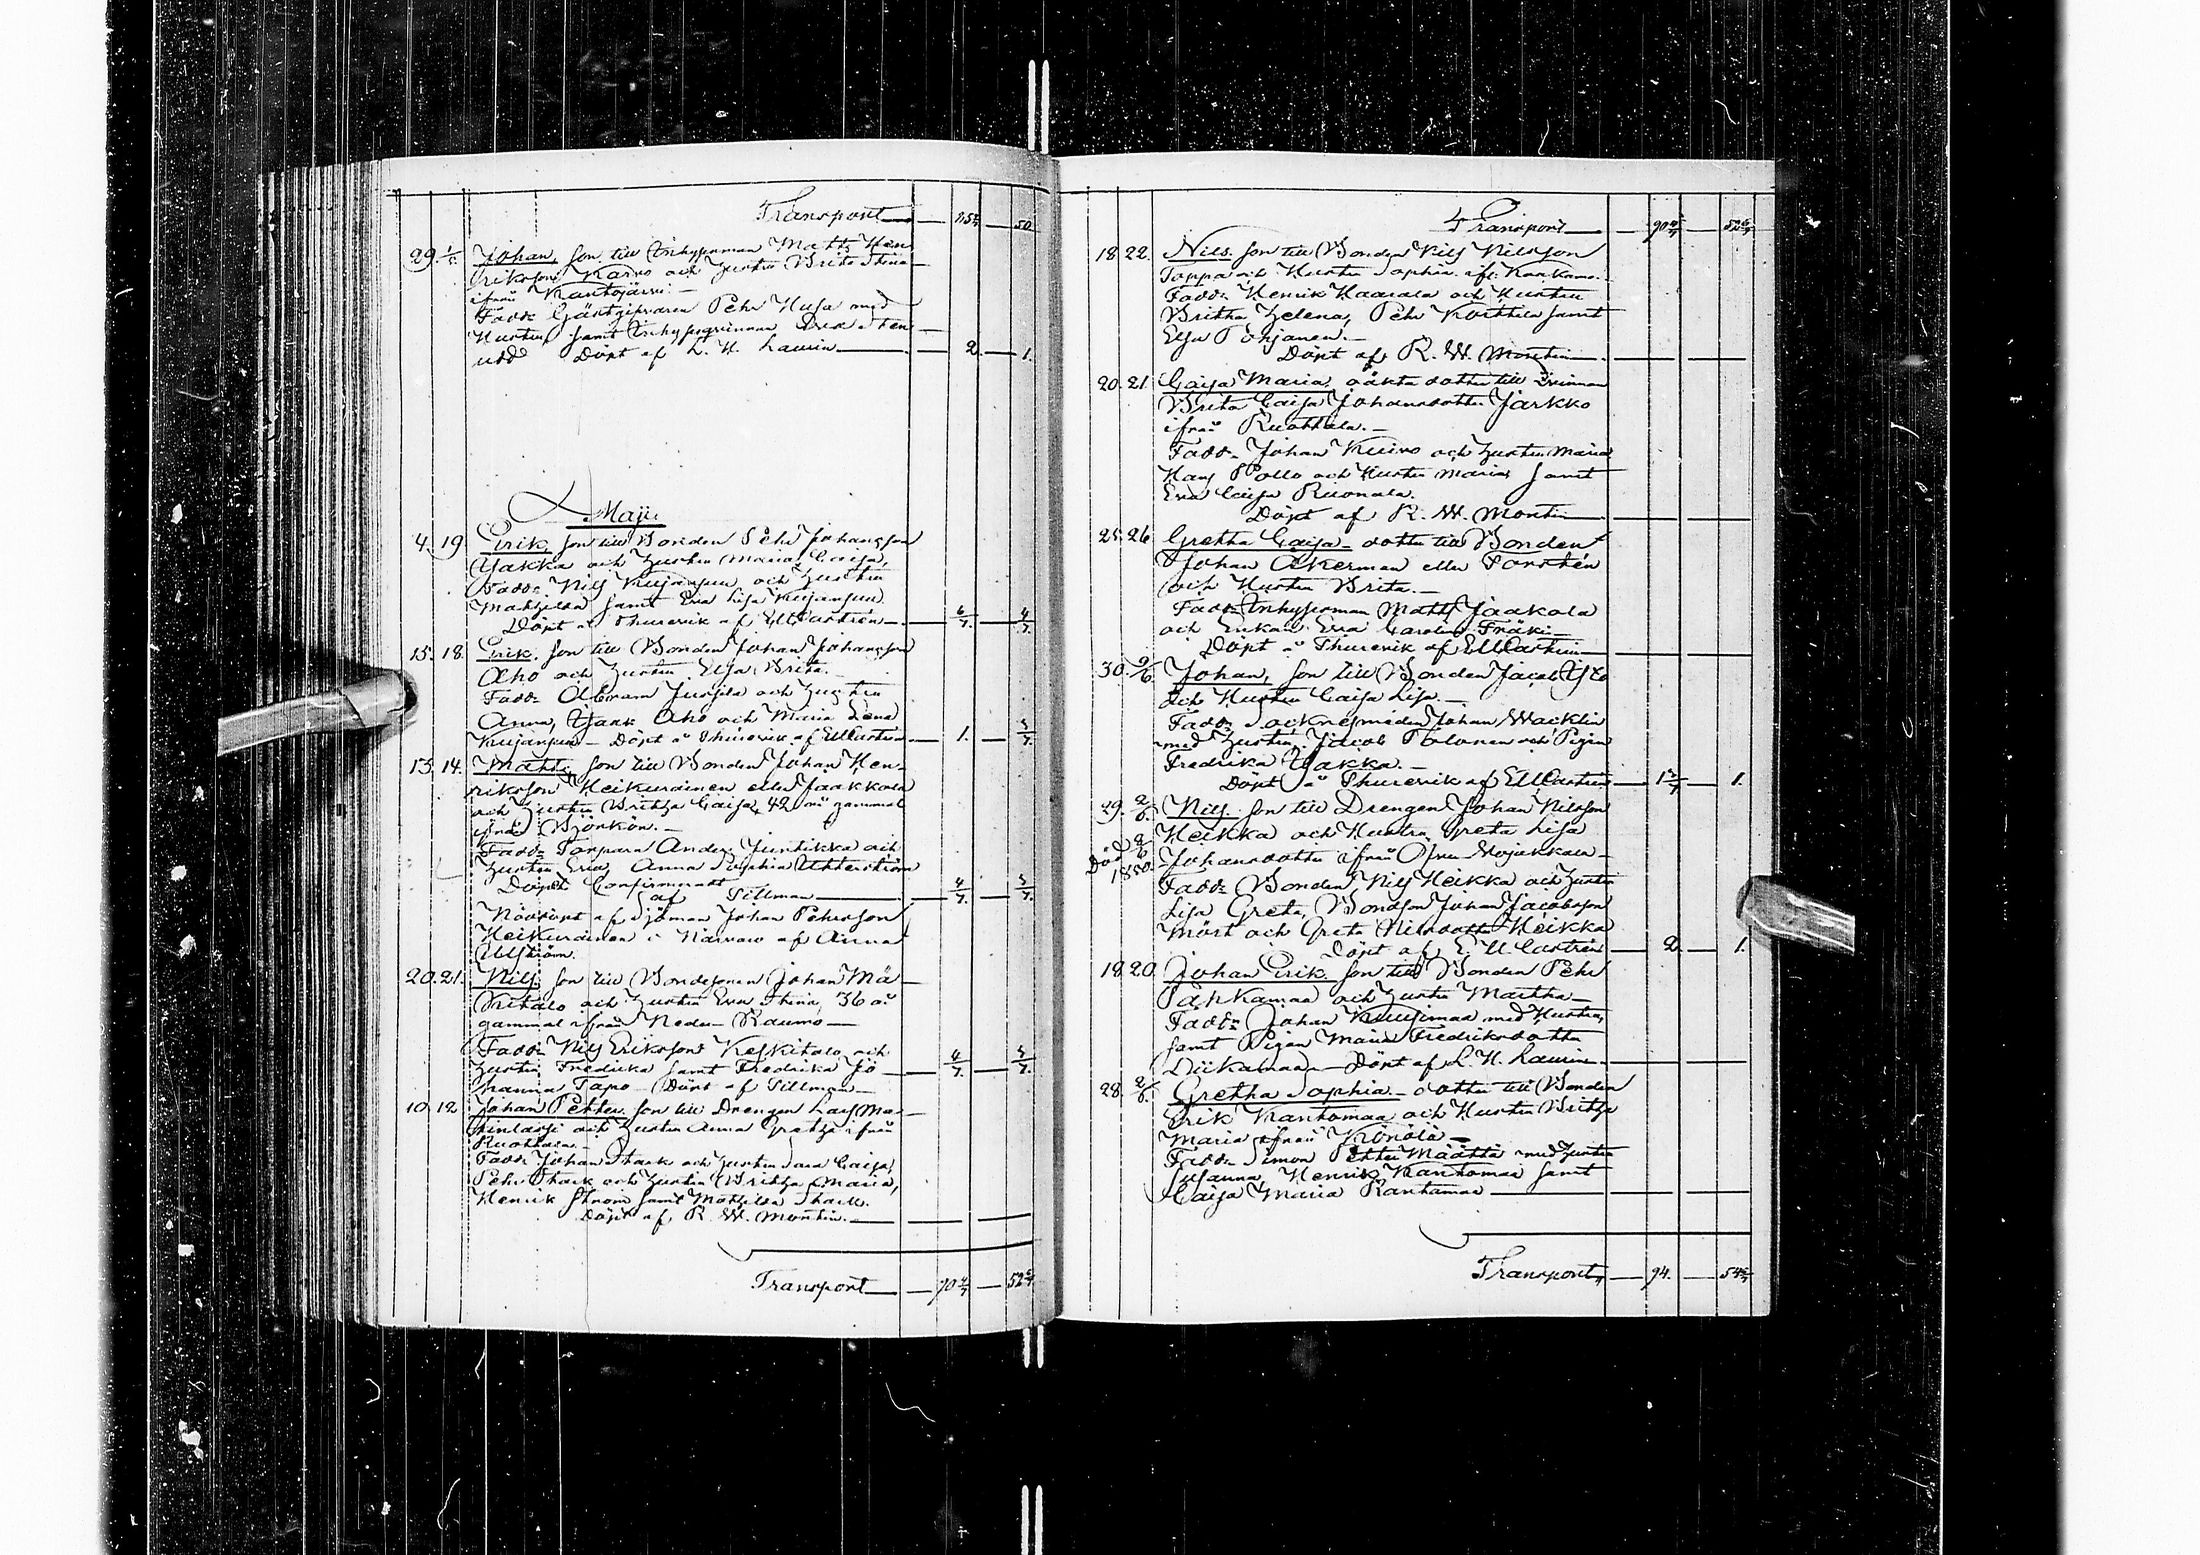 Transport — 85 5/7 — 50
29. 1/5. Johan, son till Inhysesman Matts Hen-
rikson Karvo och hustru Brita Stina
ifrån Kantojärvi. —
Fadd: Gästgifvaren Pehr Husa med
Hustru samt Inhysesqvinnan Brita Sten
udd Döpt af L. H. Laurin — 2. — 1.
Maji.
4. 19 Erik, son till Bonden Pehr Johansson
Yakka och hustru Maria Caisa,
Fadd: Nils Kujanpää och hustru
Mathilda samt Eva Lisa Kujanpää.
Döpt å Thurevik af E U Castrén — 6/7. — 4/7.
15. 18. Erik, son till Bonden Johan Johansson
Aho och hustru Elsa Brita.
Fadd: Abram Jussila och hustru
Anna, Isaak Aho och Maria Lena
Kujanpää — Döpt å Thurevik af E U Castrén — 1. — 5/7.
13. 14. Matts, son till Bonden Johan Hen-
rikson Heikurainen eller Jaakkola
och hustru Britha Caisa, 42 år gammal
ifrån Björkön. —
Fadd: Torpara Anders Juntikka och
hustru Eva, Anna Sophia Uhterström
Döpet Confirmeradt
af Tillman — 4/7. — 5/7.
Nöddöpt af Sjöman Johan Pehrsson
Heikurainen i Närvaro af Anna
Ulström.
20. 21. Nils, son till Bondesonen Johan Mä-
kitalo och hustru Eva Stina, 36 år
gammal ifrån Neder Raumo —
Fadd: Nils Erikson Keskitalo och
hustru Fredrika samt Fredrika Jo- — 4/7. — 5/7.
hanna Tapo — Döpt af Tillman —
10. 12 Johan Petter, son till Drengen Lars Ma-
och hustru Anna Gretha ifrån
Ruottala. —
Fadd: Johan Stark och hustru Sara Caisa,
Pehr Stark och hustru Britha Maria,
Henrik Ström samt Mathilda Stark.
Döpt af R. W. Montin. —
Transport — 90 4/7 — 52 6/7
Transport — 90 4/7 — 52 6/7
18. 22. Nils, son till Bonden Nils Nilsson
Toppa och Hustru Sophia ifr. Kaakamo.
Fadd: Henrik Haarala och Hustru
Britha Helena, Pehr Korttila samt
Elsa Pohjanen. —
Döpt af R. W. Montin —
20. 21. Caisa Maria, oäkta dotter till Qvinnan
Brita Caisa Johansdotter Jarkko
ifrån Ruottala. —
Fadd: Johan Kuivo och hustru Maria
Hans Pello och Hustru Maria, samt
Eva Caisa Ruonala.
Döpt af R. W. Montin —
25. 26 Gretha Caisa — dotter till Bonden
Johan Åkerman eller Porstén
och Hustru Brita. —
Fadd: Inhysesman Matts Jaakola
och Enkan Eva Carolina Fräki —
Döpt å Thurevik af E U Castrén —
30. 2/6. Johan, son till Bonden Jacob
och Hustru Caisa Lisa. —
Fadd: Socknesmeden Johan Wacklin
med hustru, Jacob Tolonen och Pigan
Fredrika Yakka. —
Döpt å Thurevik af E U Castrén — 1 3/7 — 1.
29. 2/6. Nils, son till Drengen Johan Nilsson
Heikka och Hustru Greta Lisa
Johansdotter ifrån Öfver Wojakkala —
Död 2/6 1850.
Fadd: Bonden Nils Heikka och hustru
Lisa Greta, Bondson Johan Jacobsson
Mört och Greta Nilsdotter Heikka
Döpt af E. U Castrén — 2 — 1.
18. 20 Johan Erik, son till Bonden Pehr
Päkkamaa och hustru Martha —
Fadd: Johan Kuusimaa med Hustru,
samt Pigan Maria Fredriksdotter
— Döpt af L. H. Laurin —
28. 2/6. Gretha Sophia — dotter till Bonden
Erik Kantomaa och Hustru Britha
Maria ifrån Könölä —
Fadd: Simon Petter Määttä med hustru
Susanna, Henrik Kantomaa samt
Caisa Maria Rantamaa —
Transport — 94. — 54 6/7